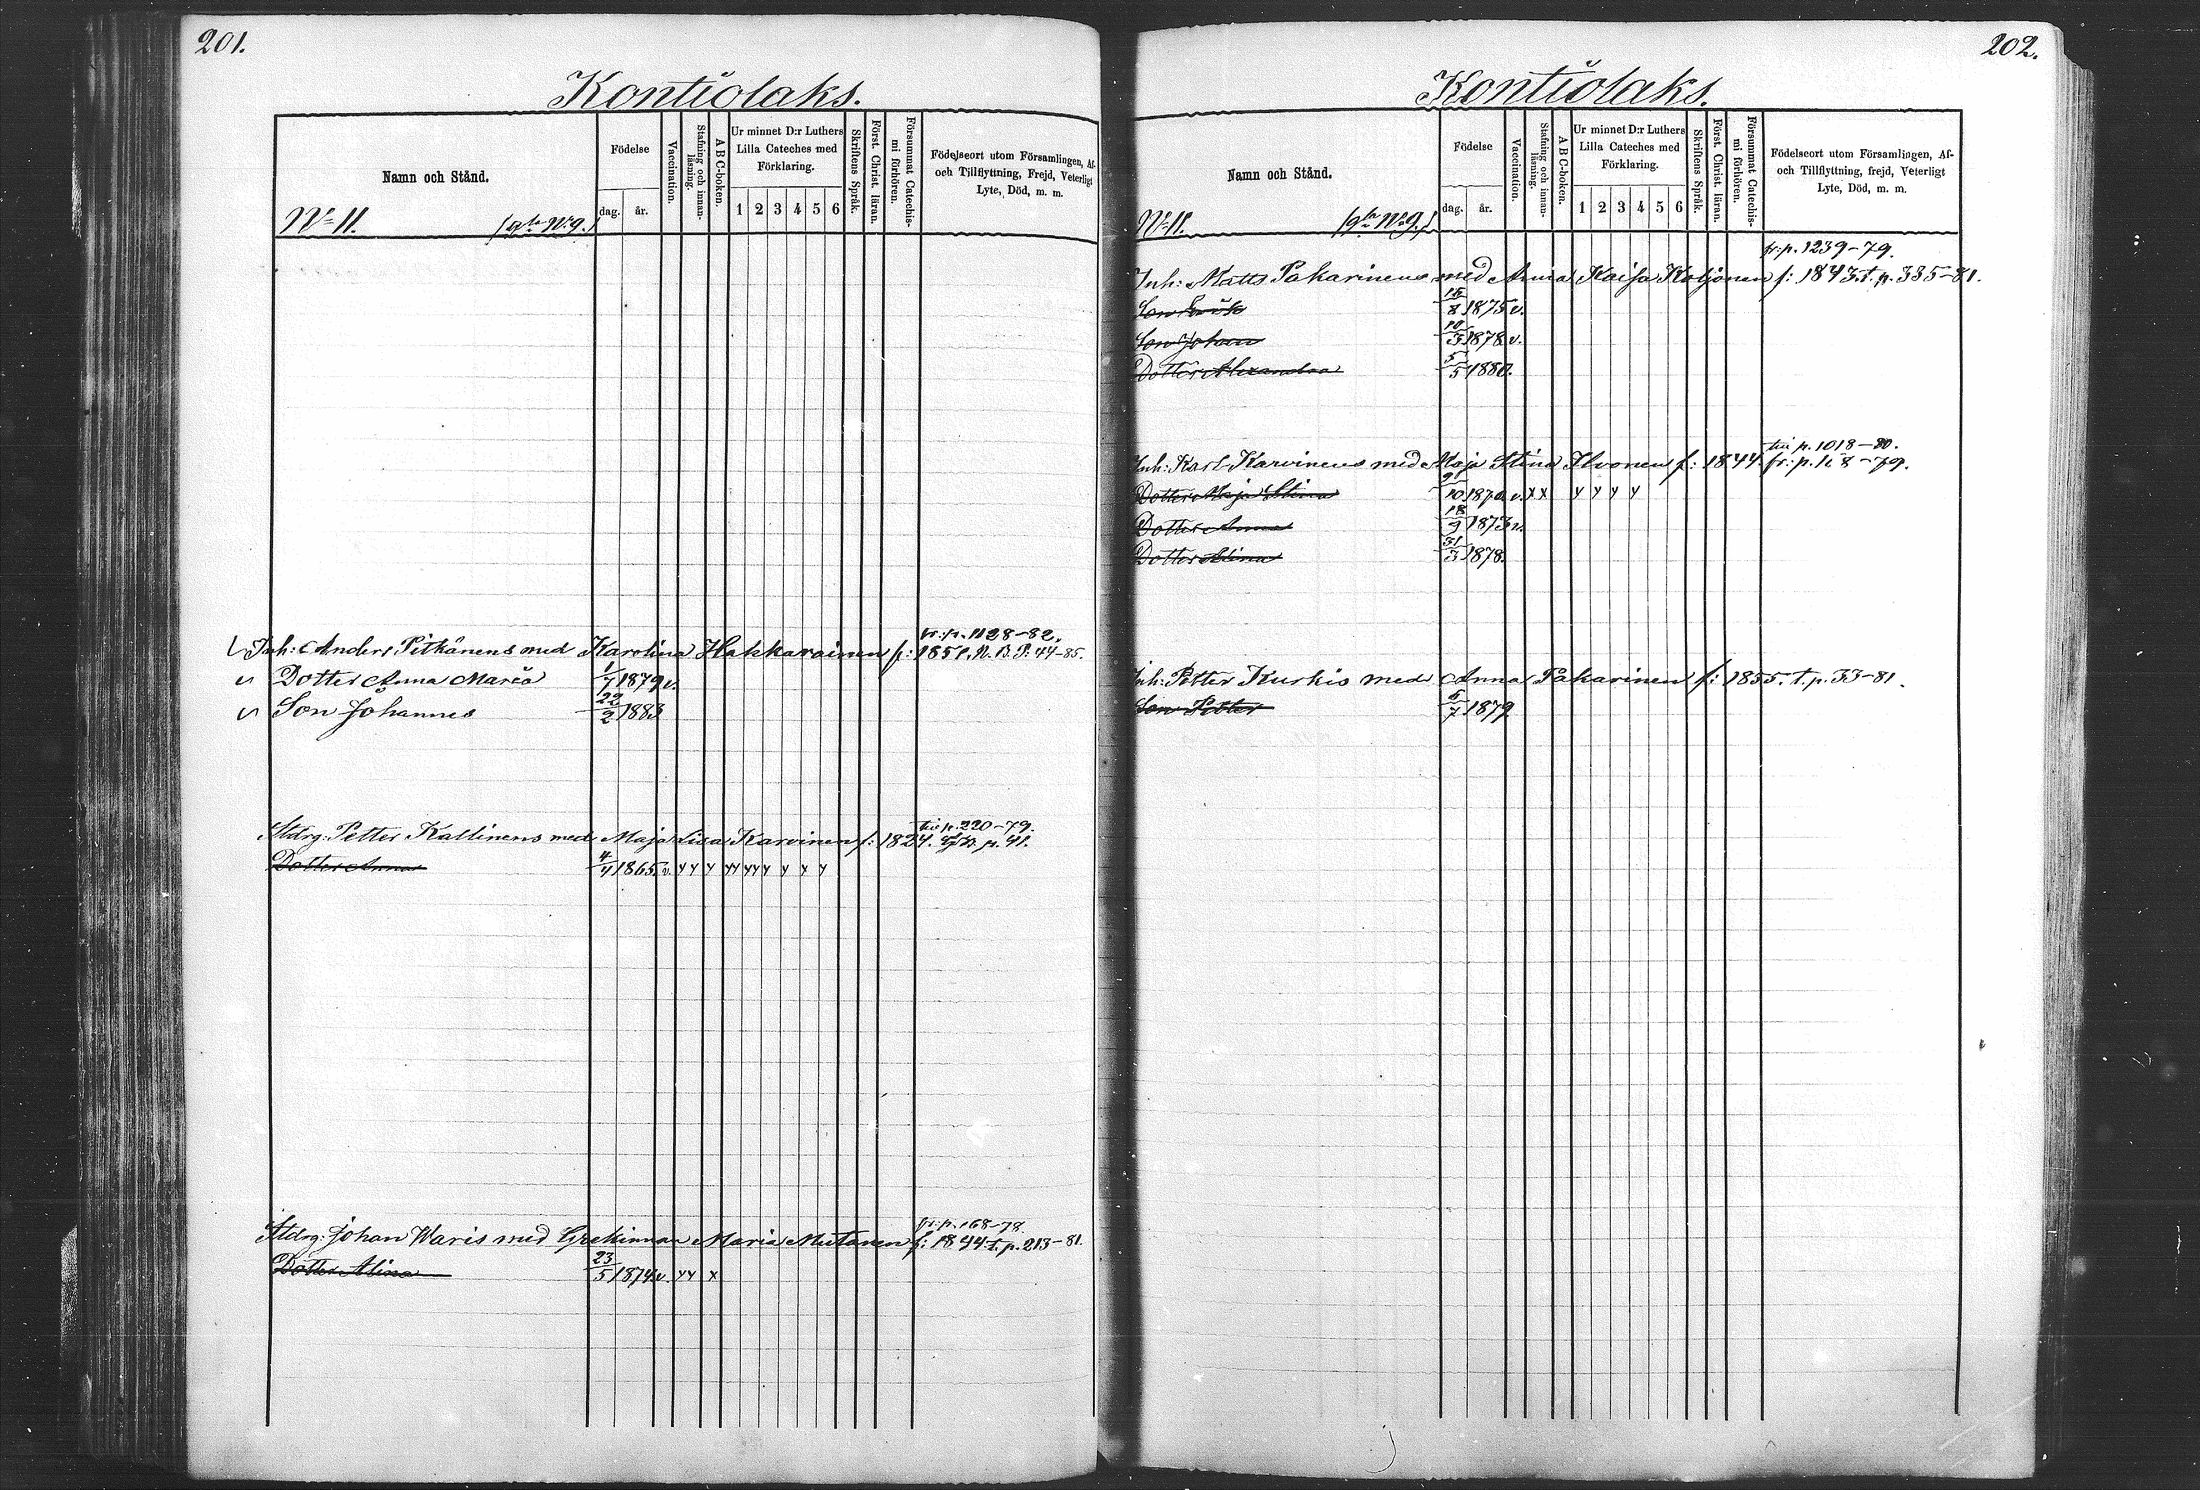 201.
Kontiolaks.
Namn och Stånd.
Födelse
dag. år.
Vaccination.
Stafning och innanläsning.
A B C-boken.
Ur minnet D:r Luthers Lilla Cateches med Förklaring.
1 2 3 4 5 6
Skriftens Språk.
Först. Christ. läran.
Försummat Catechismi förhören.
Födelseort utom Församlingen, Af- och Tillflyttning, Frejd, Veterligt Lyte, Död, m. m.
No 11. (gla No 9.)
fr: p. 1128-82.
Inh: Anders Pitkänens med Karolina Hakkarainen f: 1851. N. B. P. 44-85.
Dotter Anna Maria 1/7 1879 v.
Son Johannes 22/2 1883
p. 220-79.
Stdrg: Petter Kallinens med Maja Lisa Karvinen f: 1824. p. 41.
Dotter Anna 4/7 1865. v. yy y yy yyy y y y
fr: p. 168-78
Stdrg: Johan Waris med Grekinnan Maria Mutanen f: 1844 t. p. 213-81.
Dotter Alina 23/5 1874 v. yy x
202.
Kontiolaks.
Namn och Stånd.
Födelse
dag. år.
Vaccination.
Stafning och innanläsning.
A B C-boken.
Ur minnet D:r Luthers Lilla Cateches med Förklaring.
1 2 3 4 5 6
Skriftens Språk.
Först. Christ. läran.
Försummat Catechismi förhören.
Födelseort utom Församlingen, Af- och Tillflyttning, frejd, Veterligt Lyte, Död, m. m.
No 11. (gla No 9.)
fr: p. 1239-79.
Inh: Matts Pakarinens med Anna Kaisa Kotjonen f: 1843. t. p. 335-81.
Son 1875 v.
Son Johan 10/3 1878 v.
Dotter Alexandra 5/5 1880.
p. 1018-80.
Inh: Karl Karvinens med Maja Stina Ilvonen f: 1844. fr: p. 168-79.
Dotter Maja Stina 1870 v. x x y y y y
Dotter Anna 18/9 1873 v.
Dotter Alina 31/3 1878.
Inh: Petter Kurkis med Anna Pakarinen f: 1855. t. p. 33-81.
Son Petter 6/7 1879